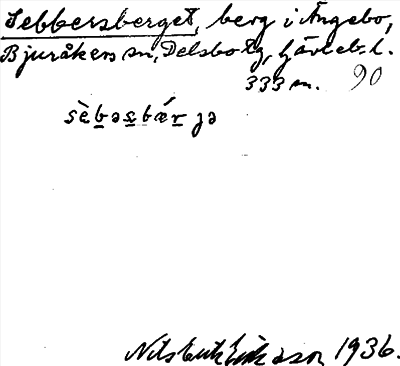 Sebbersberget, berg i Ängebo,
Bjuråkers sn, Delsbo tg, Gävleb. l.
333 m. 90
sèbəsbǽrjə
Nils Erik Eriksson 1936.